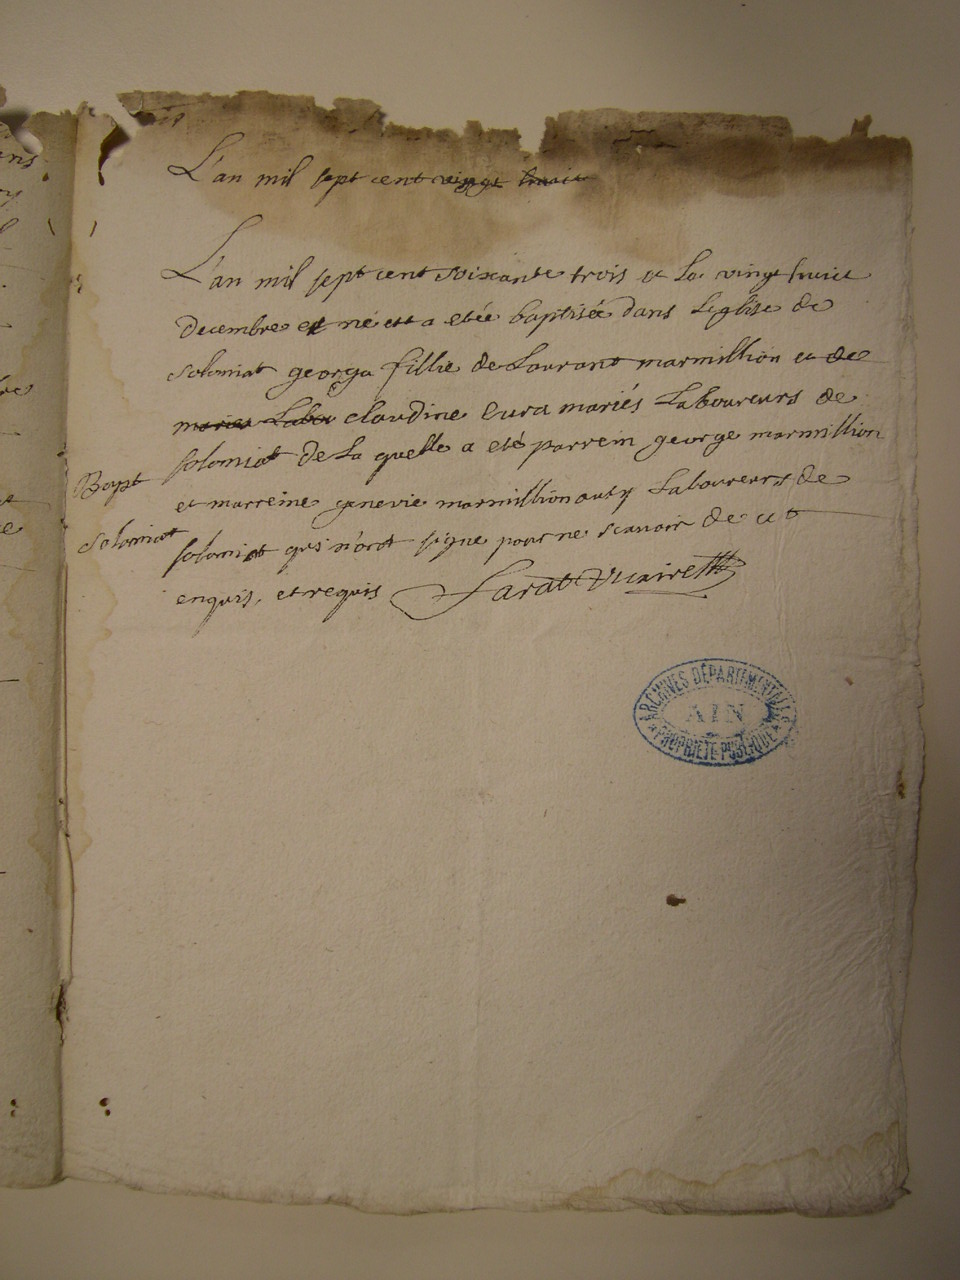 L'an mil sept cent vingt huit
L'an mil sept cent soixante trois et La vingt huict
decembre est née et a etée baptisée dans Leglise de
Solomiat georga fillie de Laurant marmillion et de
maries Labou claudine Eura mariés Laboureurs de
Solomiat de La quelle a eté parrein george marmillion
et marreine genevie marmillion auty Laboureurs de
Solomiat qui n'ont signe pour ne scavoir de cet
enquis, et requis Sarat Vicaire
Bapt
Solomiat
ARCHIVES DÉPARTEMENTALES
AIN
PROPRIÉTÉ PUBLIQUE